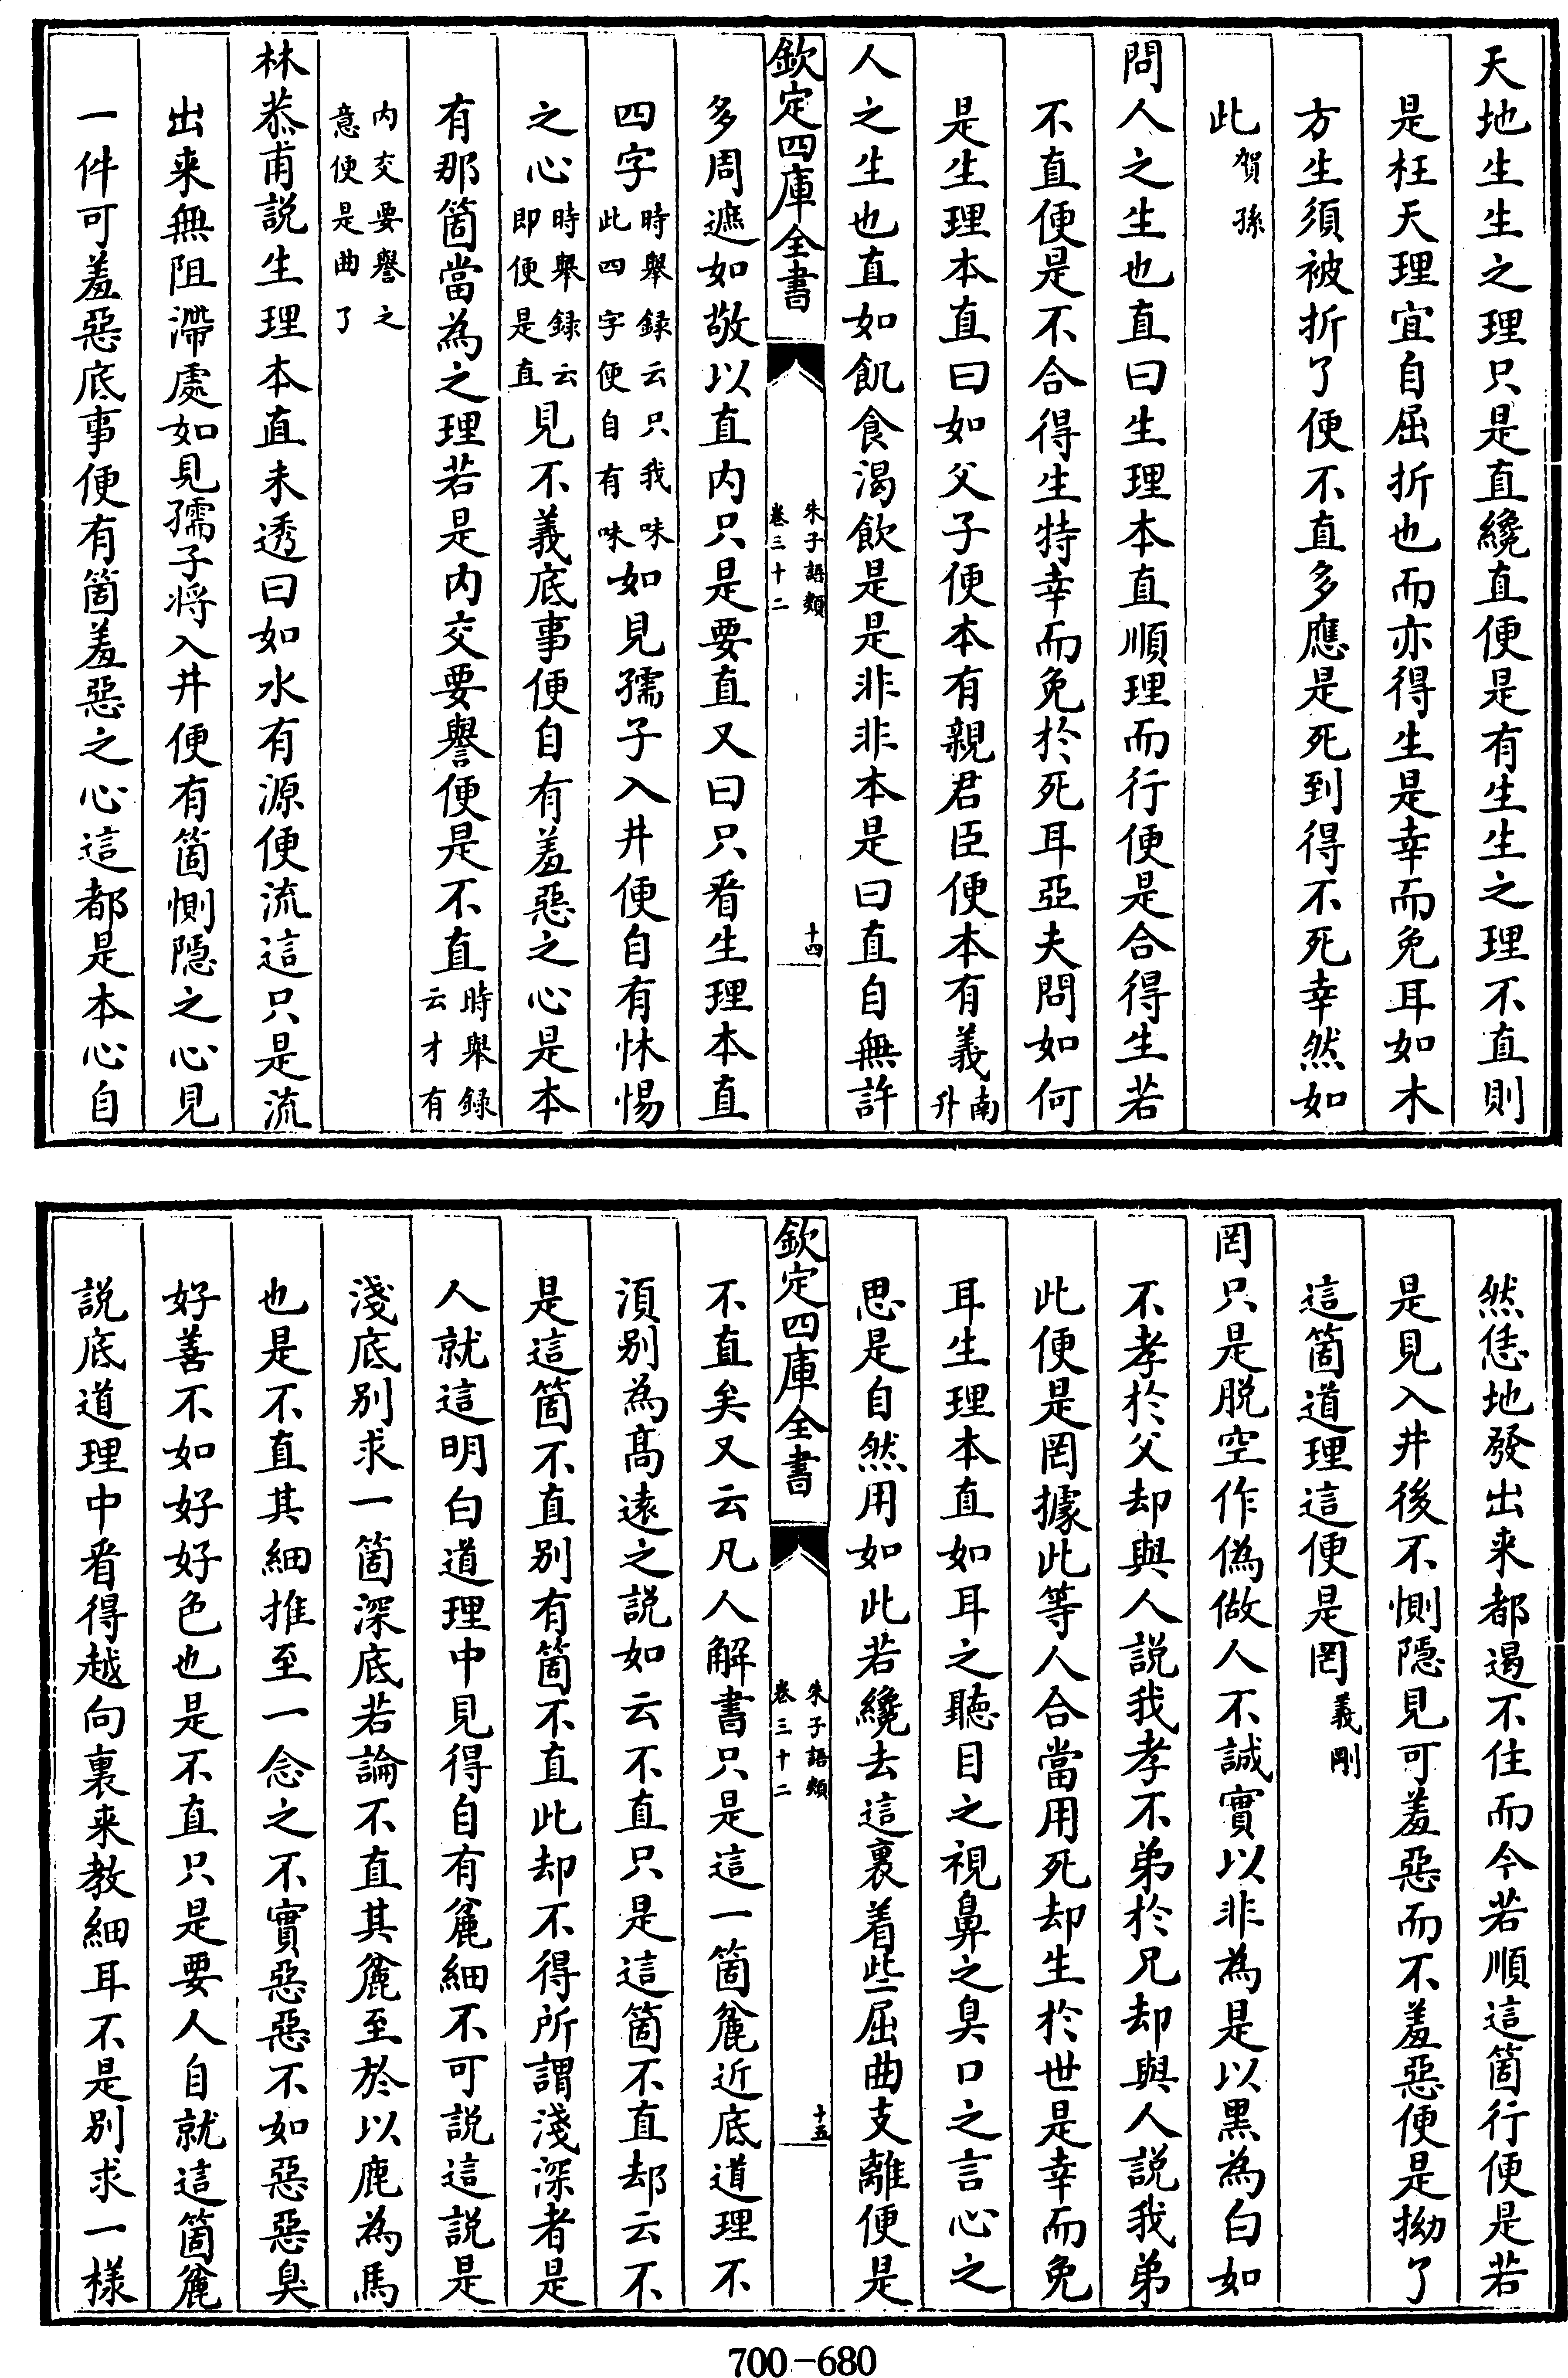 天地生生之理只是直纔直便是有生生之理不直則
是枉天理宜自屈折也而亦得生是幸而免耳如木
方生須被折了便不直多應是死到得不死幸然如
此賀孫
問人之生也直曰生理本直順理而行便是合得生若
不直便是不合得生特幸而免於死耳亞夫問如何
是生理本直曰如父子便本有親君臣便本有義南升
人之生也直如飢食渴飲是是非非本是曰直自無許
欽定四庫全書
朱子語類
卷三十二
十四
多周遮如敬以直内只是要直又曰只看生理本直
四字時舉録云只我味此四字便自有味如見孺子入井便自有怵惕
之心時舉録云即便是直見不義底事便自有羞惡之心是本
有那箇當為之理若是内交要譽便是不直時舉録云才有
内交要譽之意便是曲了
林恭甫說生理本直未透曰如水有源便流這只是流
出来無阻滯處如見孺子將入井便有箇惻隱之心見
一件可羞惡底事便有箇羞惡之心這都是本心自
然恁地發出来都遏不住而今若順這箇行便是若
是見入井後不惻隱見可羞惡而不羞惡便是拗了
這箇道理這便是罔義剛
罔只是脱空作偽做人不誠實以非為是以黑為白如
不孝於父却與人說我孝不弟於兄却與人說我弟
此便是罔據此等人合當用死却生於世是幸而免
耳生理本直如耳之聽目之視鼻之臭口之言心之
思是自然用如此若纔去這裏着些屈曲支離便是
欽定四庫全書
朱子語類
卷三十二
十五
不直矣又云凡人解書只是這一箇麄近底道理不
須别為高遠之說如云不直只是這箇不直却云不
是這箇不直别有箇不直此却不得所謂淺深者是
人就這明白道理中見得自有麄細不可說這說是
淺底别求一箇深底若論不直其麄至於以鹿為馬
也是不直其細推至一念之不實惡惡不如惡惡臭
好善不如好好色也是不直只是要人自就這箇麄
說底道理中看得越向裏来教細耳不是别求一樣
700-680